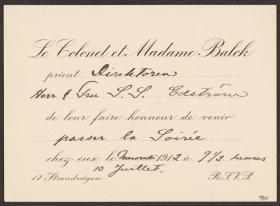 Le Colonel et Madame Balck
prient Direktören
Herr & Fru S.S. Edström
de leur faire honneur de venir
passer la Soirée
chez eux le 1912 à 9½ heures
10 Juillet.
17 Strandvägen R.S.V.P.